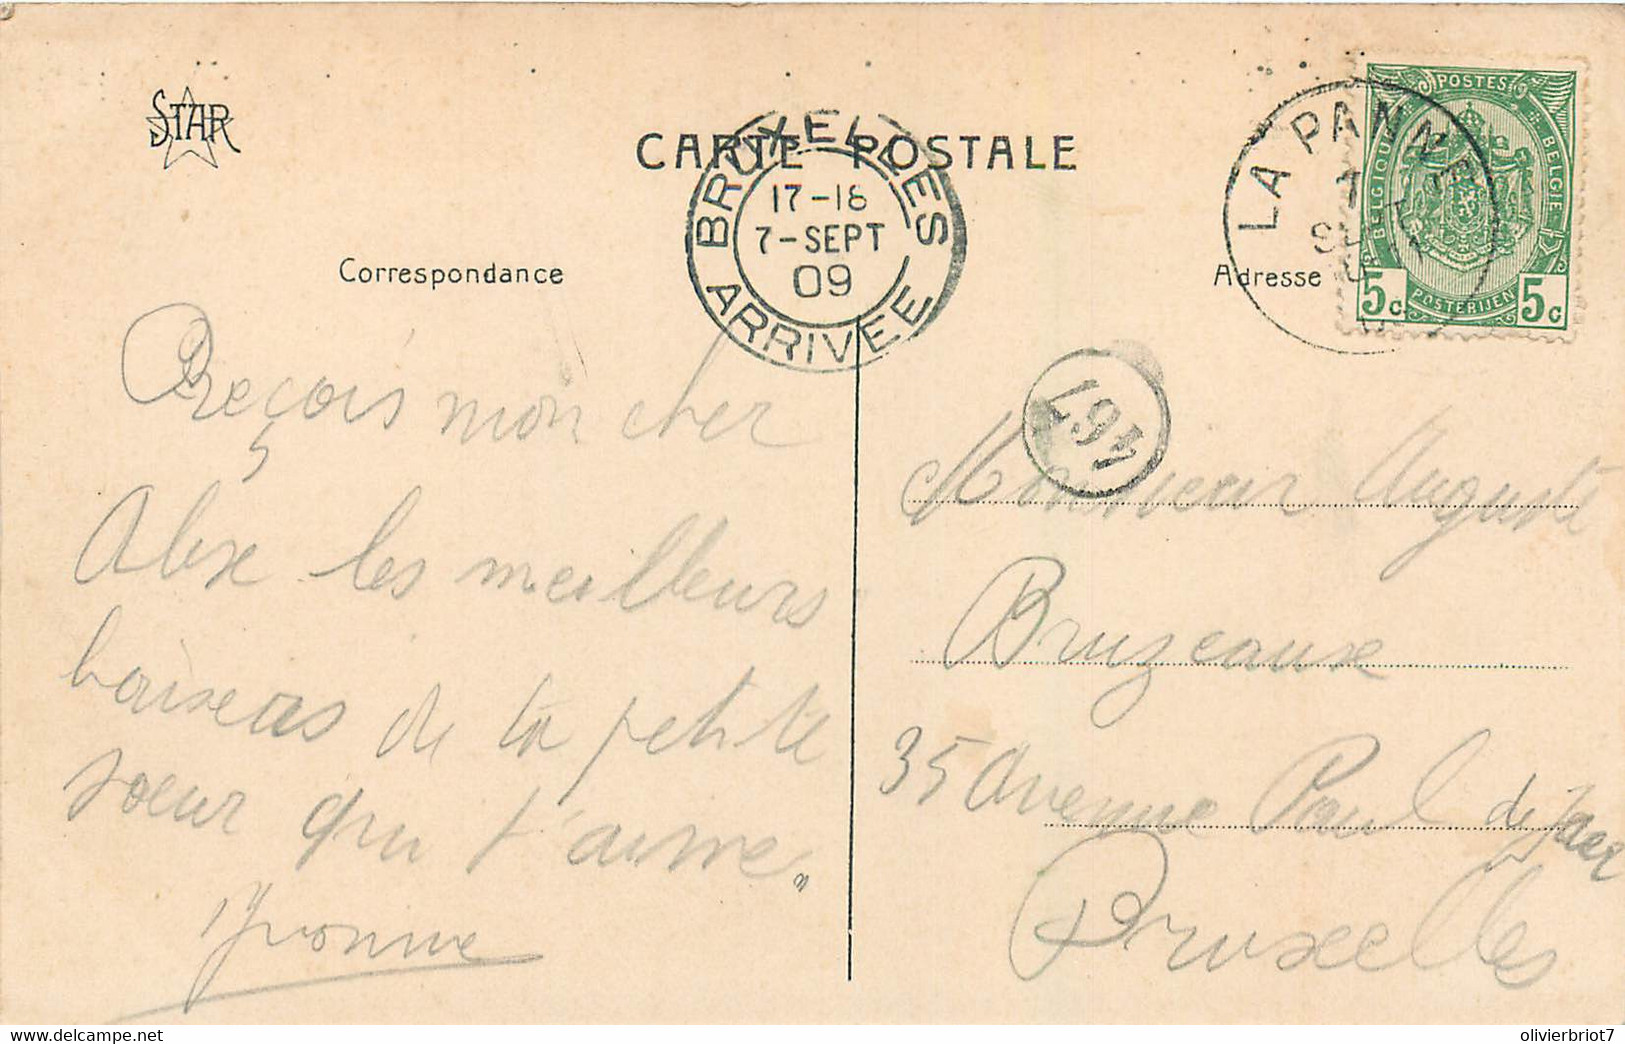 STAR
CARTE POSTALE
BRUXELLES
17-18
7-SEPT
09
ARRIVEE
LA PANNE
POSTES
BELGIQUE
BELGIE
POSTERIJEN
5c 5c
Correspondance
Adresse
467
Reçois mon cher
les meilleurs
baisers de ta petite
sœur qui t'aime.
Yvonne
Monsieur Auguste
Bruzeaux
35 Avenue Paul de Jaer
Bruxelles
www.delcampe.net
olivierbriot7